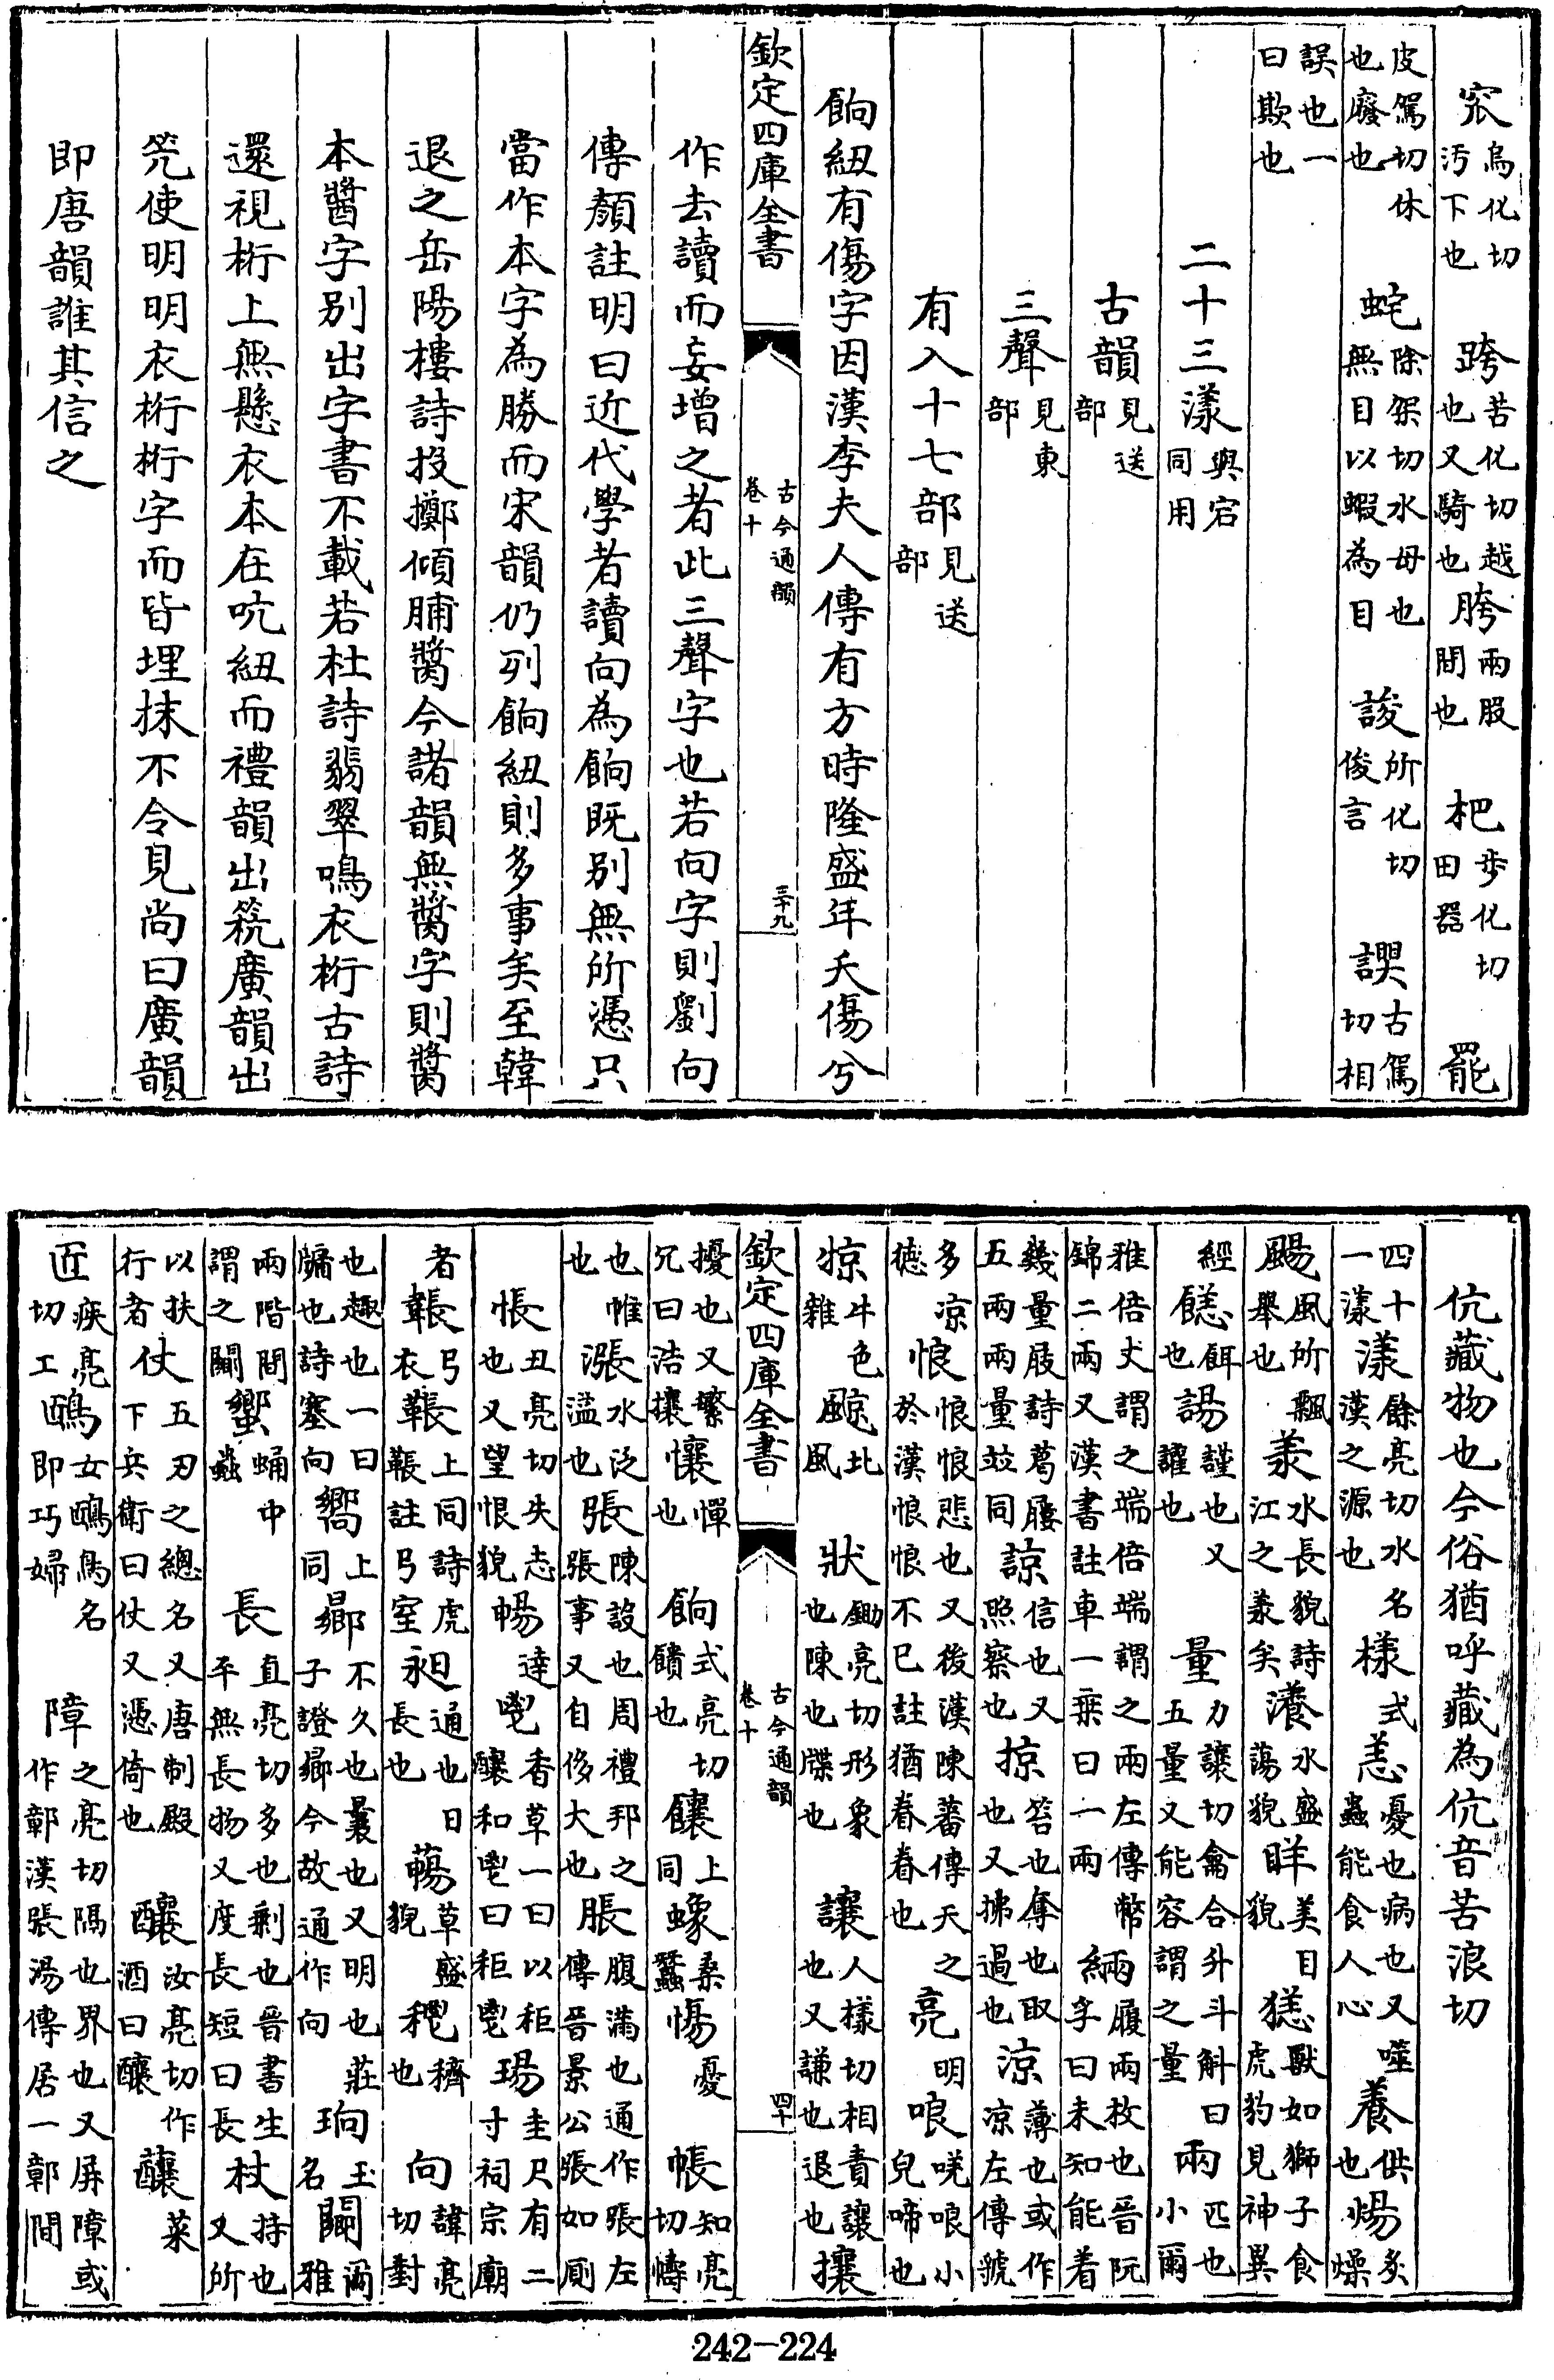 窊烏化切汚下也　跨苦化切越也又騎也胯兩股間也　杷步化切田器　罷
皮駕切休也廢也　蛇除架切水母也無目以蝦為目　誜所化切俊言　謑古駕切相
誤也一曰欺也
二十三漾與宕同用
古韻見送部
三聲見東部
有入十七部見送部
餉紐有傷字因漢李夫人傳有方時隆盛年夭傷兮
欽定四庫全書　古今通韻卷十　三十九
作去讀而妄增之者此三聲字也若向字則劉向
傳顏註明曰近代學者讀向為餉既別無所憑只
當作本字為勝而宋韻仍列餉紐則多事矣至韓
退之岳陽樓詩投擲傾脯醬今諸韻無醬字則醬
本醬字別出字書不載若杜詩翡翠鳴衣桁古詩
還視桁上無懸衣本在吭紐而禮韻出筦廣韻出
笐使明明衣桁桁字而皆埋抹不令見尚曰廣韻
即唐韻誰其信之
伉藏物也今俗猶呼藏為伉音苦浪切
四十一漾漾餘亮切水名漢之源也　樣式恙憂也病也又噬蟲能食人心　養供也煬炙燥
颺風所飄舉也羕水長貌詩江之羕矣瀁水盛蕩貌眻美目貌㺊獸如獅子食虎豹見神異
經䬺餌也諹謹也又讙也　量力讓切龠合升斗斛曰五量又能容謂之量　兩匹也小爾
雅倍丈謂之端倍端謂之兩左傳幣錦二兩又漢書註車一乘曰一兩　緉履兩枚也晉阮孚曰未知能着
幾量屐詩葛屨五兩兩量竝同諒信也又照察也掠笞也奪也取也又拂過也涼薄也或作凉左傳虢
多凉德　悢悢悢悲也又後漢陳蕃傳天之於漢悢悢不已註猶眷眷也　亮明哴咣哴小兒啼也
㹁牛色雜䬅北風　狀鋤亮切形象也陳也牒也　讓人樣切相責讓也又謙也退也攘
欽定四庫全書　古今通韻卷十　四十
擾也又繁兄曰浩攘懹憚也　餉式亮切饋也　饟上同蠰桑蠶慯憂　帳知亮切幬
也帷也漲水泛溢也張陳設也周禮邦之張事又自侈大也脹腹滿也通作張左傳晉景公張如厠
悵丑亮切失志也又望恨貌暢達鬯香草一曰以秬釀和鬯曰秬鬯瑒圭尺有二寸祠宗廟
者韔弓衣䩨上同詩虎韔註弓室昶通也日長也　䓪草盛貌㮝穧也　向許亮切對
也趣也一曰牖也詩塞向嚮上同　曏不久也曩也又明也莊子證曏今故通作向　珦玉名闞爾雅
兩階間謂之闞蠁蛹中蟲　長直亮切多也剩也晉書生平無長物又度長短曰長杖持也又所
以扶行者仗五刃之總名又唐制殿下兵衛曰仗又憑倚也　釀汝亮切作酒曰釀　䕭菜
匠疾亮切工鴹女鴹鳥名即巧婦　障之亮切隔也界也又屏障或作鄣漢張湯傳居一鄣間
242—224